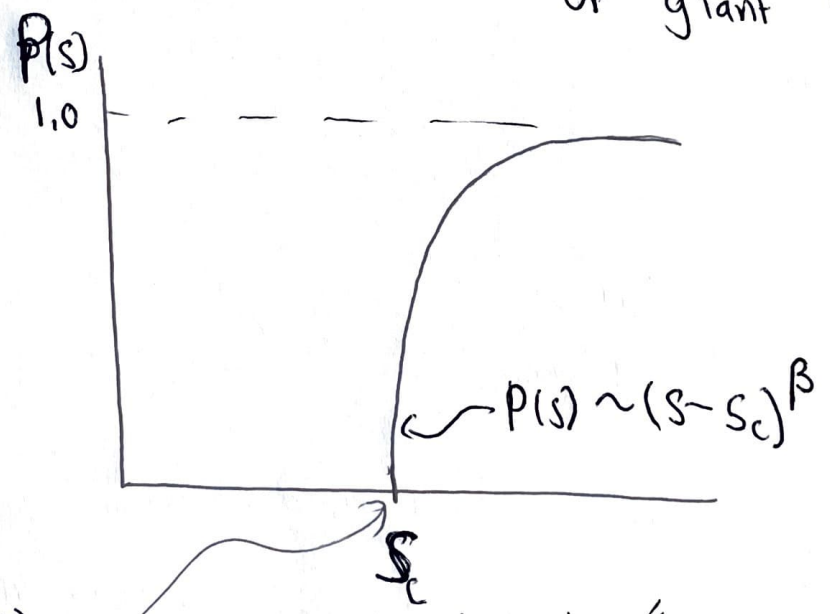 of giant
P(s)
1.0
P(s) ~ (s - s_c)^β
S_c